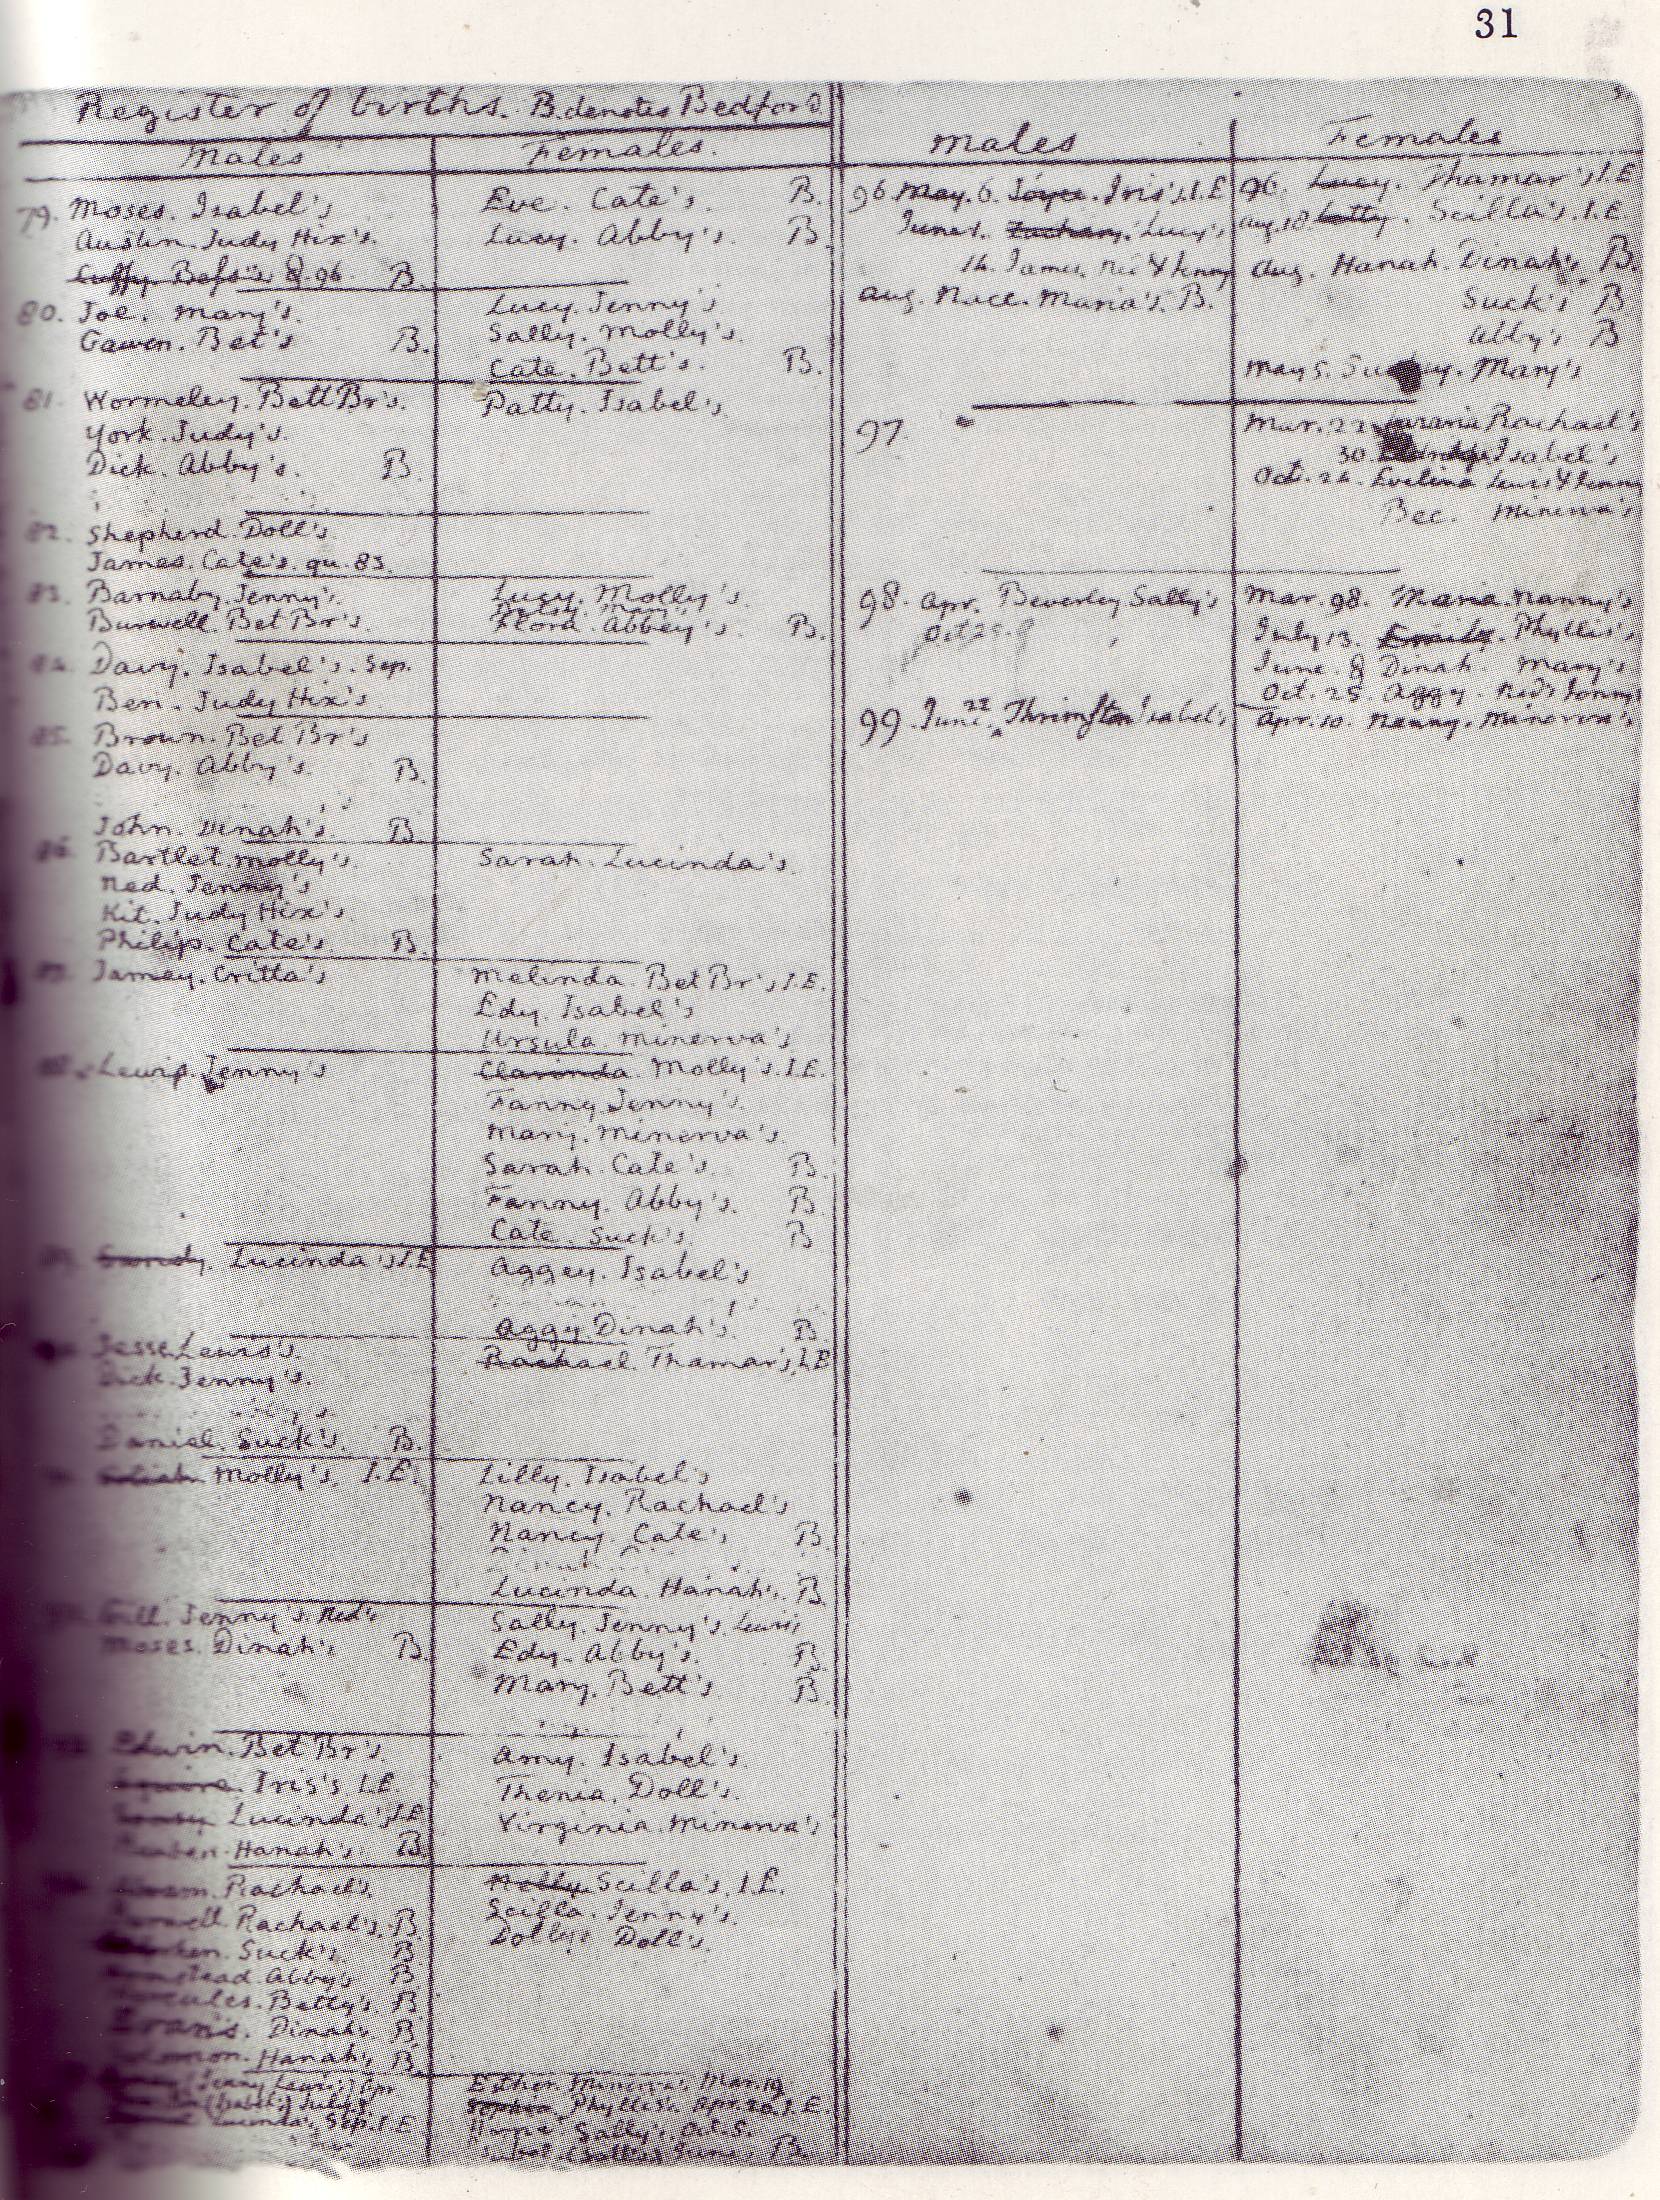 31
Register of births. B. denotes Bedford
Males
Females.
79. Moses. Isabel's
Austin. Judy Hix's.
Cuffy. Bess's 8. 96. B.
Eve. Cate's. B.
Lucy. Abby's. B.
80. Joe. Mary's.
Gawen. Bet's B.
Lucy. Jenny's
Sally. Molly's.
Cate. Bett's. B.
81. Wormeley. Bett Br's.
York. Judy's.
Dick. Abby's. B
Patty. Isabel's
82. Shepherd. Doll's
James. Cate's. qu. 83.
83. Barnaby. Jenny's.
Burwell. Bet Br's.
Lucy. Molly's.
Betsy. Mary's
Flora. Abbey's. B.
84. Davy. Isabel's. Sep.
Ben. Judy Hix's
85. Brown. Bet Br's
Davy. Abby's. B.
John. Dinah's. B
86. Bartlet. Molly's.
Ned. Jenny's
Kit. Judy Hix's.
Philip. Cate's. B.
Sarah. Lucinda's.
87. Jamey. Critta's
Melinda. Bet Br's, I.E.
Edy. Isabel's
Ursula. Minerva's
88. Lewis. Jenny's
Clarinda. Molly's. I.E.
Fanny. Jenny's.
Mary. Minerva's.
Sarah. Cate's. B.
Fanny. Abby's. B
Cate. Suck's. B
Lucinda's I.E
Aggey. Isabel's
Aggy. Dinah's. B.
Jesse. Lewis's.
Dick. Jenny's.
Daniel. Suck's. B.
Rachael. Thamar's, I.E
Molly's. I.E.
Lilly. Isabel's
Nancy. Rachael's
Nancy. Cate's B.
Lucinda. Hanah's. B.
Gill. Jenny's. Ned's
Moses. Dinah's B.
Sally. Jenny's. Lewis's
Edy. Abby's. B
Mary. Bett's B
Edwin. Bet Br's.
Iris's I.E.
Lucinda's I.E
Hanah's. B.
Amy. Isabel's.
Thenia. Doll's.
Virginia. Minerva's
Rachael's
Rachael's. B
Suck's. B
Abby's B
Betty's. B
Evans. Dinah's B
Hanah's B.
Molly Scilla's, I.E.
Scilla. Jenny's.
Dolly. Doll's.
Jenny Lewis's Apr.
(Isabel's) July
Lucinda's, Sep. I.E
Esther. Minerva's. Mar. 19
Sophia. Phyllis's. Apr. 20. I.E.
Sally's. Oct. 5.
June. B.
Males
Females
96. May. 6. Joyce. Iris's. I.E
June 1. Zachary. Lucy's
16. James. Ned & Jenny
Aug. Nace. Maria's. B.
96. Lucy. Thamar's I.E
Aug. 18. Letty. Scilla's. I.E
Aug. Hanah. Dinah's B.
Suck's B
Abby's B
May 5. Mary's
97.
Mar. 22. Rachael's
30. Isabel's
Oct. 26. Evelina Lewis & Jenny
Bec. Minerva's
98. Apr. Beverley Sally's
Mar. 98. Maria. Nanny's
July 13. Emily. Phyllis's
June. 8 Dinah. Mary's
Oct. 25. Aggy. Ned's Jenny
99. June 22 Thrimston Isabel's
Apr. 10. Nanny. Minerva's